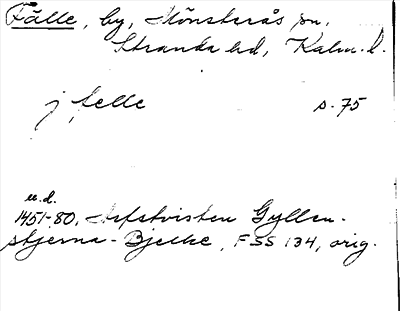 Fälle, by, Mönsterås sn,
Stranda hd, Kalm. l.
j felle s. 75
u.d.
1451-80, Arfstvisten Gyllen-
stjerna-Bjelke, FSS 134, orig.